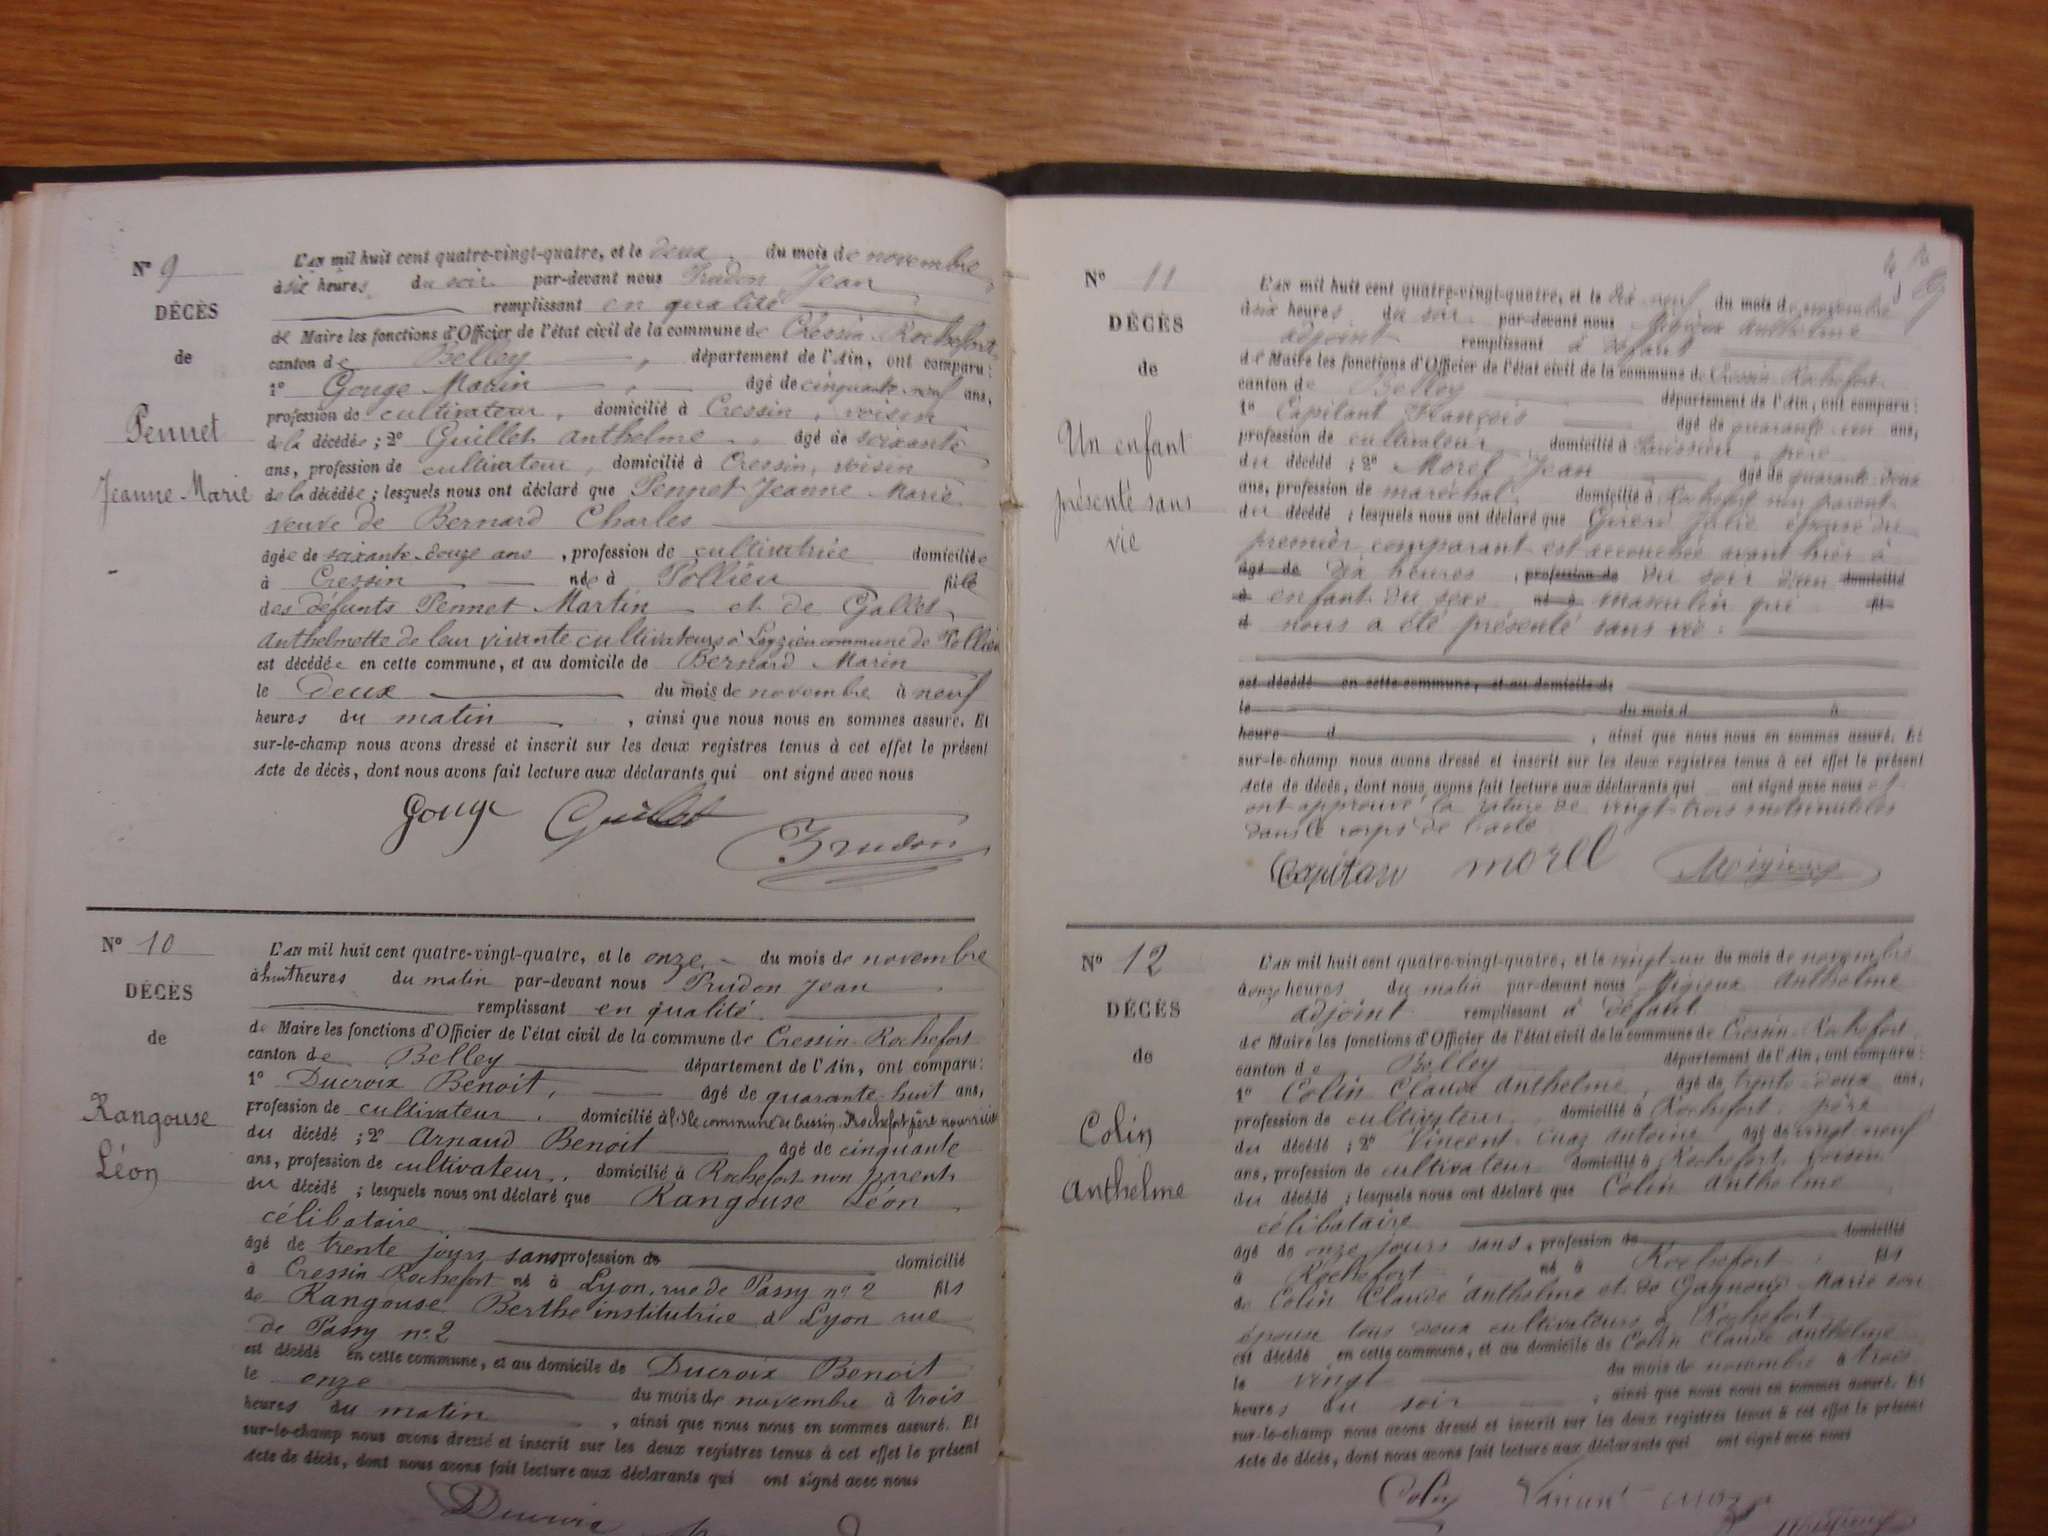 N° 9
DÉCÈS
de
Pennet
Jeanne Marie
L'AN mil huit cent quatre-vingt-quatre, et le deux du mois de novembre
à six heures du soir par-devant nous Prudon Jean
remplissant en qualité
de Maire les fonctions d'Officier de l'état civil de la commune de Cressin Rochefort
canton de Belley, département de l'Ain, ont comparu:
1° Gouge Marin, âgé de cinquante neuf ans,
profession de cultivateur, domicilié à Cressin, voisin
de la décédée; 2° Guillet anthelme, âgé de soixante
ans, profession de cultivateur, domicilié à Cressin, voisin
de la décédée; lesquels nous ont déclaré que Pennet Jeanne Marie
veuve de Bernard Charles
âgée de soixante douze ans, profession de cultivatrice domiciliée
à Cressin née à Pollieu fille
des défunts Pennet Martin et de Gallet
anthelmette de leur vivante cultivateurs à Leyzieu commune de Pollieu
est décédée en cette commune, et au domicile de Bernard Marin
le deux du mois de novembre à neuf
heures du matin, ainsi que nous nous en sommes assuré. Et
sur-le-champ nous avons dressé et inscrit sur les deux registres tenus à cet effet le présent
Acte de décès, dont nous avons fait lecture aux déclarants qui ont signé avec nous
Gouge Guillet Prudon
N° 10
DÉCÈS
de
Rangouse
Léon
L'AN mil huit cent quatre-vingt-quatre, et le onze du mois de novembre
à huit heures du matin par-devant nous Prudon Jean
remplissant en qualité
de Maire les fonctions d'Officier de l'état civil de la commune de Cressin Rochefort
canton de Belley département de l'Ain, ont comparu:
1° Ducroix Benoit, âgé de quarante huit ans,
profession de cultivateur, domicilié à l'Ile commune de Cressin Rochefort père nourricier
du décédé; 2° Arnaud Benoit âgé de cinquante
ans, profession de cultivateur, domicilié à Rochefort non parent
du décédé; lesquels nous ont déclaré que Rangouse Léon
célibataire
âgé de trente jours sans profession de domicilié
à Cressin Rochefort né à Lyon, rue de Passy n° 2 fils
de Rangouse Berthe institutrice à Lyon rue
de Passy n° 2
est décédé en cette commune, et au domicile de Ducroix Benoit
le onze du mois de novembre à trois
heures du matin, ainsi que nous nous en sommes assuré. Et
sur-le-champ nous avons dressé et inscrit sur les deux registres tenus à cet effet le présent
Acte de décès, dont nous avons fait lecture aux déclarants qui ont signé avec nous
N° 11
DÉCÈS
de
Un enfant
présenté sans
vie
L'AN mil huit cent quatre-vingt-quatre, et le dix neuf du mois de novembre
à six heures du soir par-devant nous Migieux Anthelme
adjoint remplissant à défaut
de Maire les fonctions d'Officier de l'état civil de la commune de Cressin Rochefort
canton de Belley département de l'Ain, ont comparu:
1° Capitant François âgé de quarante un ans,
profession de cultivateur domicilié à père
du décédé; 2° Morel Jean âgé de quarante deux
ans, profession de maréchal, domicilié à Rochefort non parent
du décédé; lesquels nous ont déclaré que Julie épouse du
premier comparant est accouchée avant hier à
âgé de dix heures, profession de du soir d'un domicilié
à enfant du sexe né à masculin qui fil
d nous a été présenté sans vie.
est décédé en cette commune, et au domicile de
le du mois d à
heure d, ainsi que nous nous en sommes assuré. Et
sur-le-champ nous avons dressé et inscrit sur les deux registres tenus à cet effet le présent
Acte de décès, dont nous avons fait lecture aux déclarants qui ont signé avec nous et
ont approuvé la rature de vingt-trois mots nuls
dans le corps de l'acte
Capitan morel Migieux
N° 12
DÉCÈS
de
Colin
Anthelme
L'AN mil huit cent quatre-vingt-quatre, et le vingt-un du mois de novembre
à onze heures du matin par-devant nous Migieux Anthelme
adjoint remplissant à défaut
de Maire les fonctions d'Officier de l'état civil de la commune de Cressin Rochefort
canton de Belley département de l'Ain, ont comparu:
1° Colin Claude Anthelme, âgé de trente deux ans,
profession de cultivateur domicilié à Rochefort, père
du décédé; 2° Vincent Cuaz Antoine âgé de vingt neuf
ans, profession de cultivateur domicilié à Rochefort, voisin
du décédé; lesquels nous ont déclaré que Colin Anthelme
célibataire
âgé de onze jours sans, profession de domicilié
à Rochefort, né à Rochefort, fils
de Colin Claude Anthelme et de Marie son
épouse tous deux cultivateurs à Rochefort
est décédé en cette commune, et au domicile de Colin Claude Anthelme
le vingt du mois de novembre à trois
heures du soir, ainsi que nous nous en sommes assuré. Et
sur-le-champ nous avons dressé et inscrit sur les deux registres tenus à cet effet le présent
Acte de décès, dont nous avons fait lecture aux déclarants qui ont signé avec nous
Colin